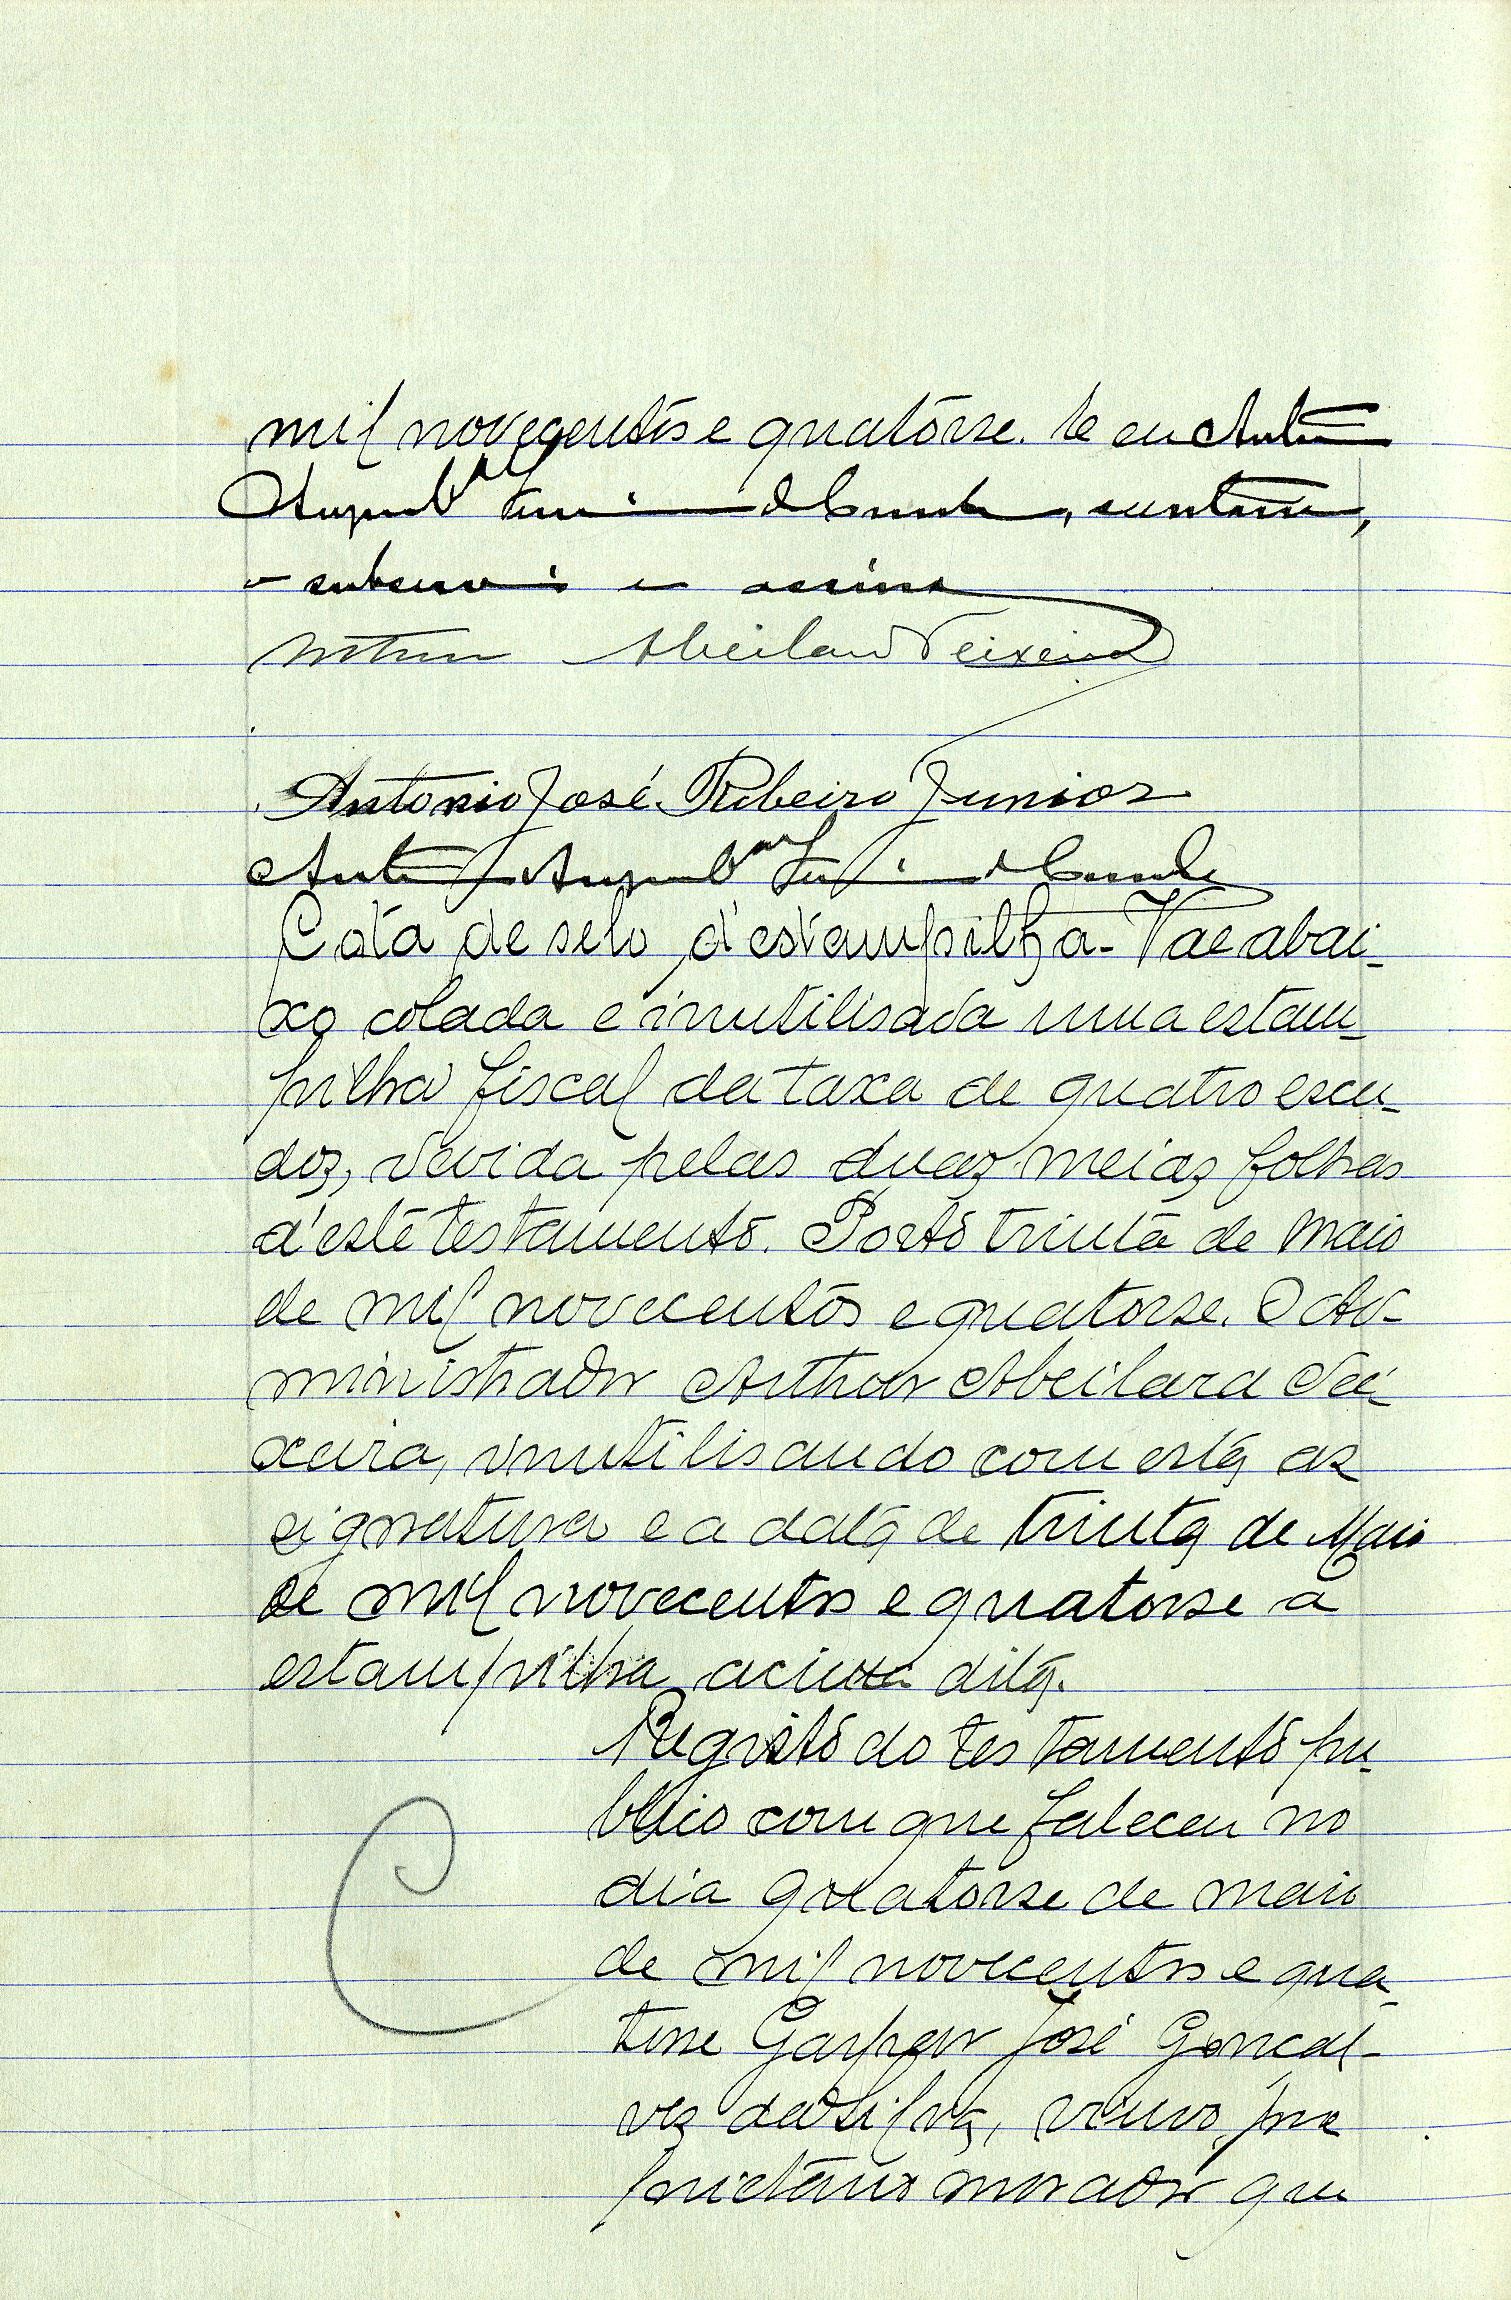 mil novecentos e quatorse. E eu Antonio
Augusto
subscrevi e assino
Arthur Abeilard Teixeira
Antonio José Ribeiro Junior
Antonio Augusto
Cota de selo d'estampilha - Vae abai-
xo colada e inutilisada uma estam-
pilha fiscal da taxa de quatro escu-
dos, devida pelas duas meias folhas
d'este testamento. Porto trinta de Maio
de mil novecentos e quatorse. O Ad-
ministrador Arthur Abeilard Tei-
xeira, inutilisando com esta as
signatura e a data de trinta de Maio
de mil novecentos e quatorse a
estampilha acima dita.
Registo do testamento pu-
blico com que faleceu no
dia quatorse de maio
de mil novecentos e qua-
torse Gaspar José Gonçal-
ves da Silva, viuvo, pro
prietario morador que